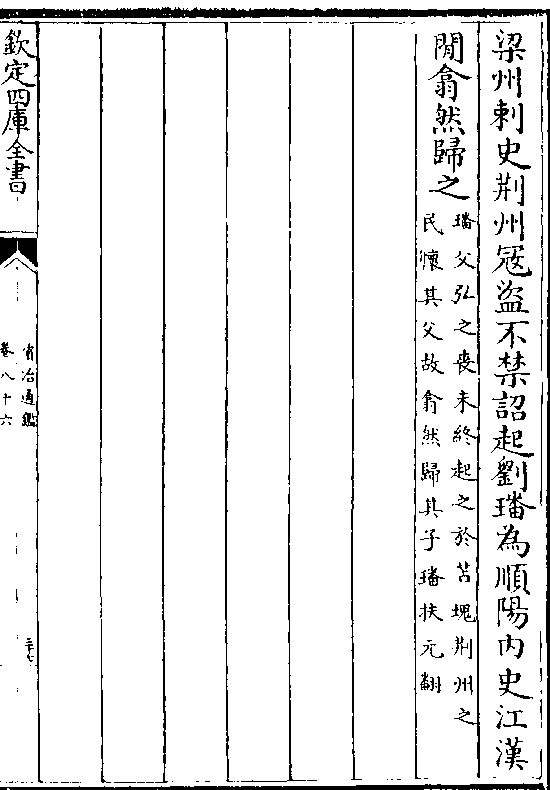 梁州刺史荆州寇盗不禁詔起劉璠為順陽内史江漢
閒翕然歸之
璠父弘之喪未終起之於苫塊荆州之
民懷其父故翕然歸其子璠扶元翻
欽定四庫全書
資治通鑑
卷八十六
三十七